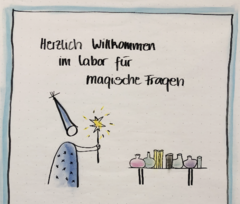 Herzlich Willkommen
im Labor für
magische Fragen